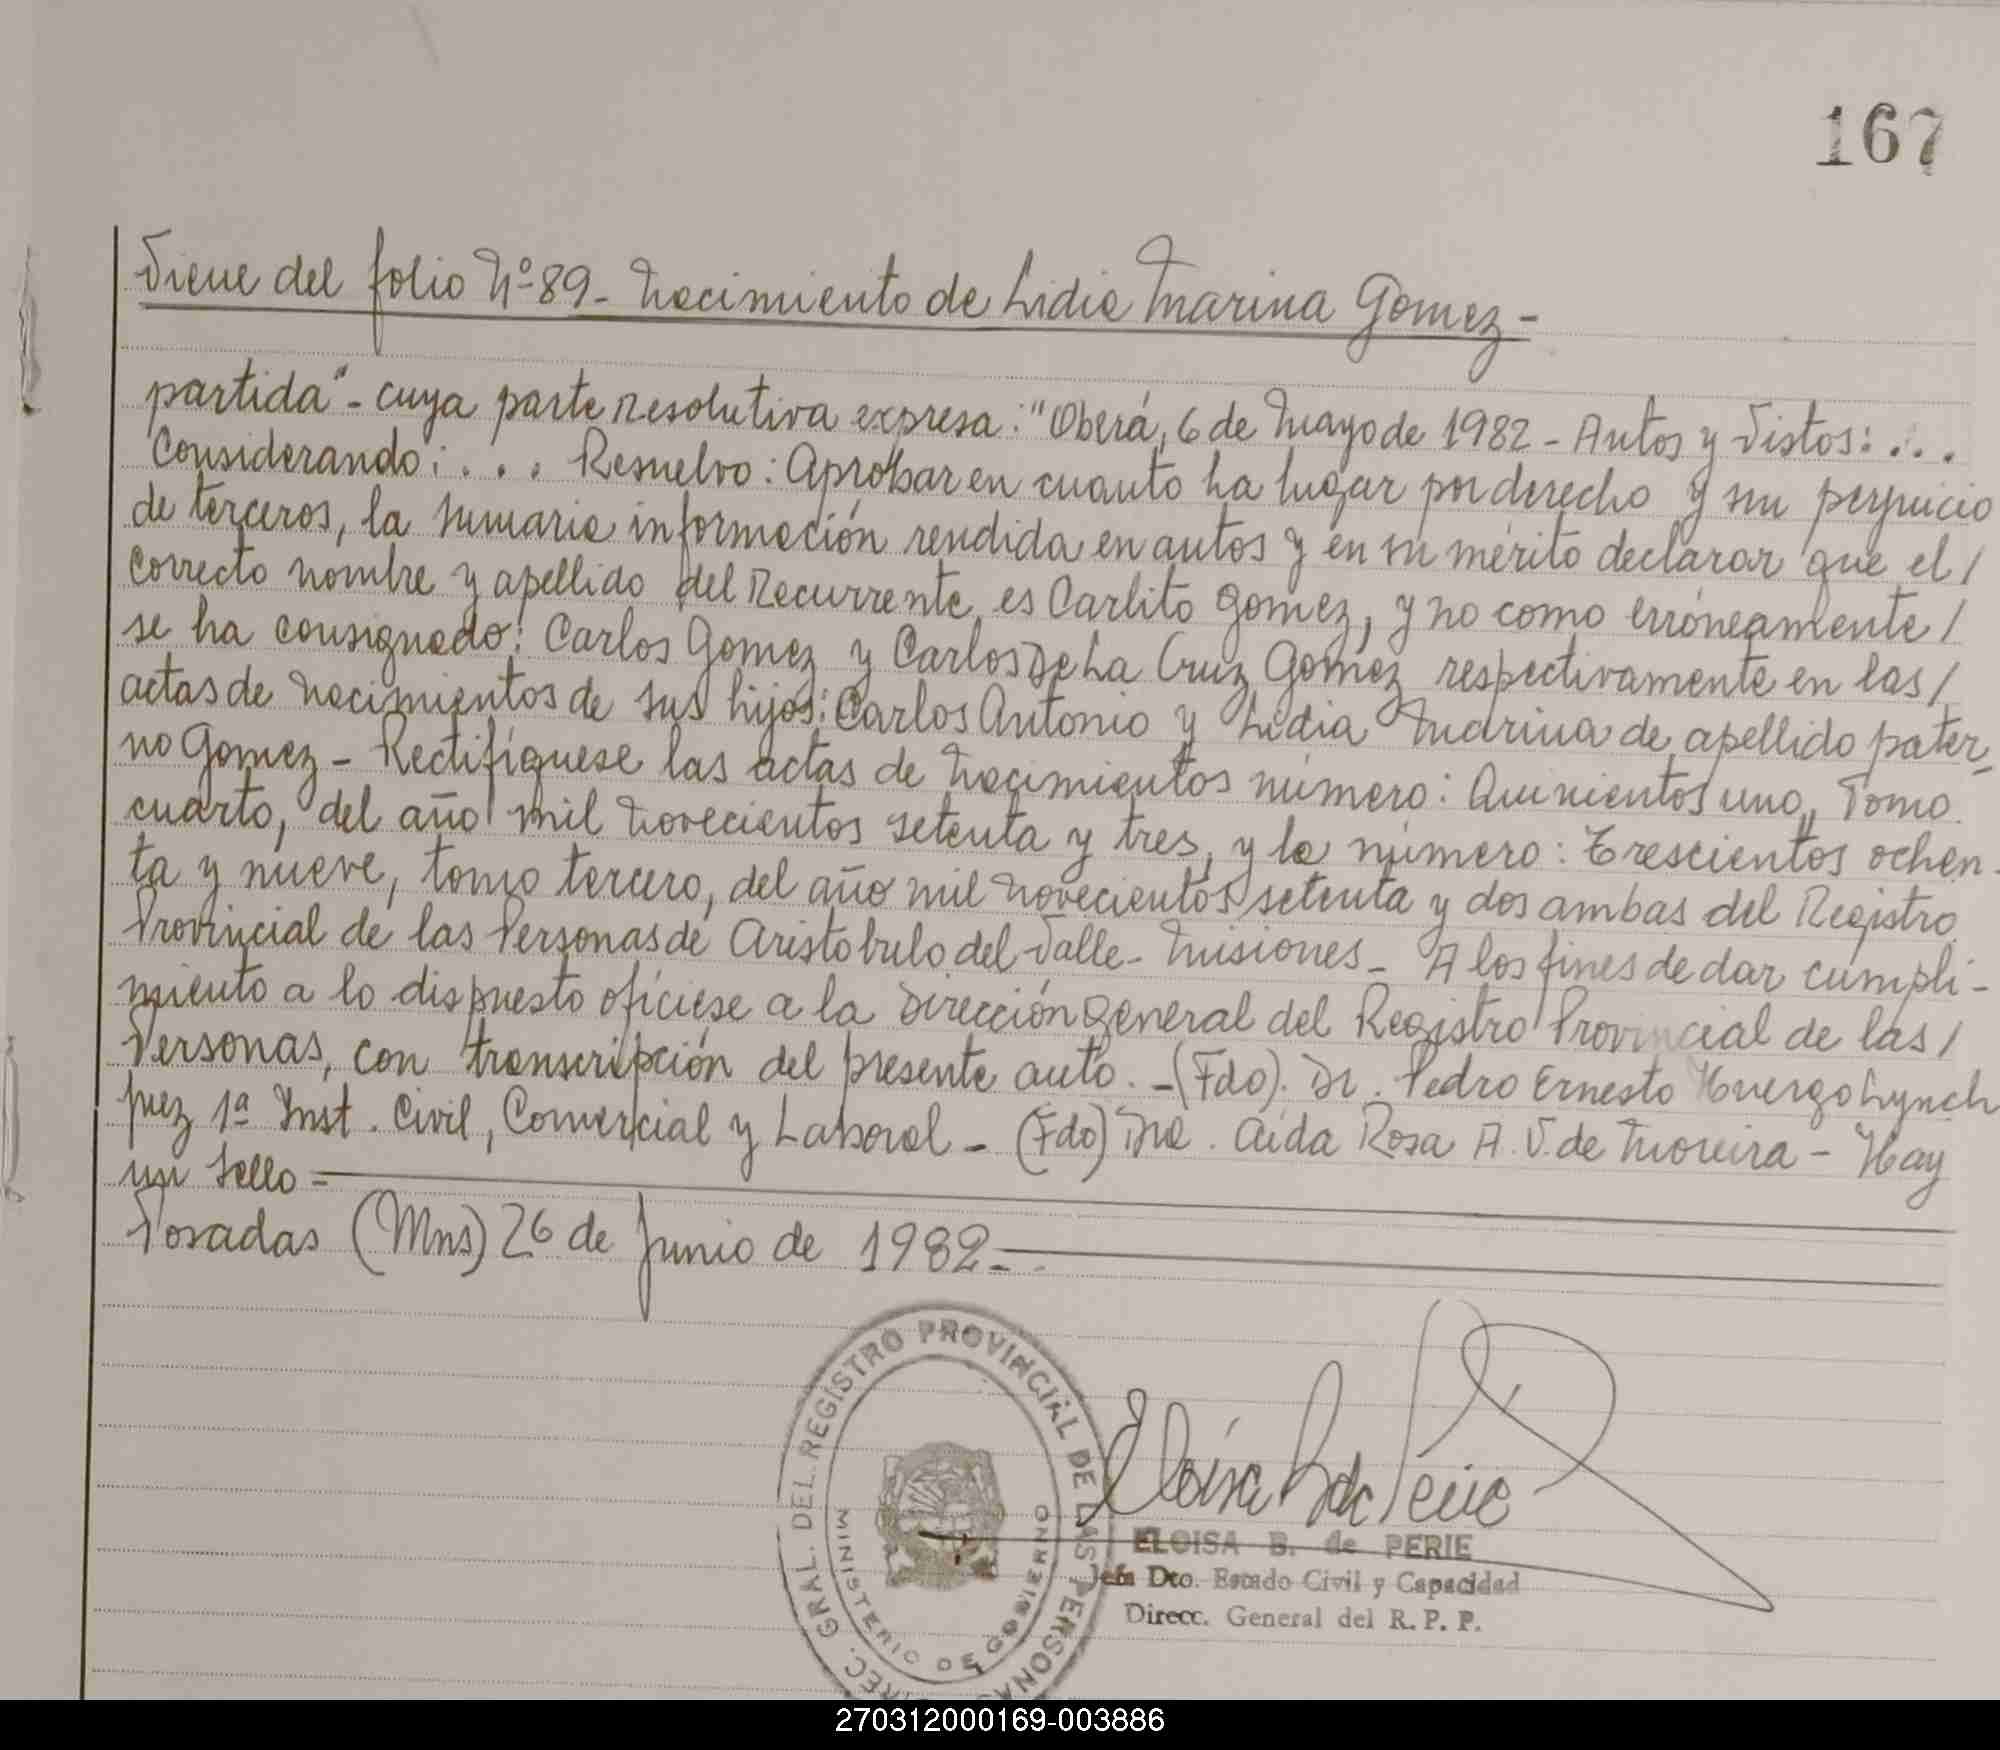 167
Viene del folio Nº 89 - Nacimiento de Lidia Marina Gomez -
partida" - cuya parte resolutiva expresa: "Oberá, 6 de Mayo de 1982 - Autos y Vistos: ...
Considerando: ... Resuelvo: Aprobar en cuanto ha lugar por derecho y sin perjuicio
de terceros, la sumaria información rendida en autos y en su mérito declarar que el /
correcto nombre y apellido del Recurrente es Carlito Gomez, y no como erróneamente /
se ha consignado: Carlos Gomez y Carlos De La Cruz Gomez respectivamente en las /
actas de nacimientos de sus hijos: Carlos Antonio y Lidia Marina de apellido pater-
no Gomez - Rectifíquese las actas de Nacimientos número: Quinientos uno, Tomo
cuarto, del año mil novecientos setenta y tres, y la número: Trescientos ochen-
ta y nueve, tomo tercero, del año mil novecientos setenta y dos ambas del Registro
Provincial de las Personas de Aristobulo del Valle - Misiones - A los fines de dar cumpli-
miento a lo dispuesto ofíciese a la Dirección General del Registro Provincial de las /
Personas, con transcripción del presente auto. - (Fdo). Dr. Pedro Ernesto Huergo Lynch
Juez 1ª Inst. Civil, Comercial y Laboral - (Fdo) Dra. Aída Rosa A. V. de Moreira - Hay
un sello -
Posadas (Mns) 26 de Junio de 1982 -
GRAL. DEL REGISTRO PROVINCIAL DE LAS PERSONAS
MINISTERIO DE GOBIERNO
ELOISA B. de PERIE
Jefa Dto. Estado Civil y Capacidad
Direcc. General del R. P. P.
270312000169-003886